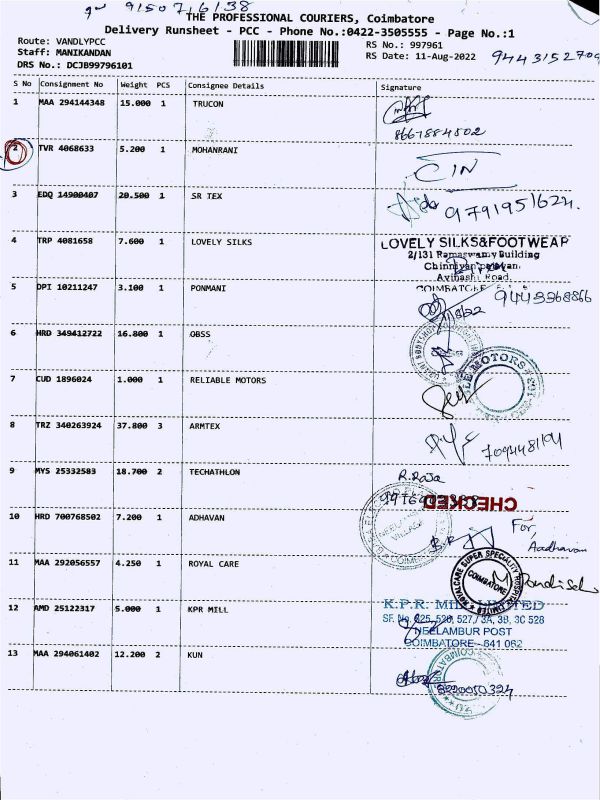 THE PROFESSIONAL COURIERS, Coimbatore
Delivery Runsheet - PCC - Phone No.:0422-3505555 - Page No.:1
Route: VANDLYPCC
RS No.: 997961
Staff: MANIKANDAN
RS Date: 11-Aug-2022
DRS No.: DCJB99796101
S No Consignment No Weight PCS Consignee Details Signature
1 MAA 294144348 15.000 1 TRUCON
8667884502
2 TVR 4068633 5.200 1 MOHANRANI
3 EDQ 14900407 20.500 1 SR TEX
9791951624.
4 TRP 4081658 7.600 1 LOVELY SILKS
LOVELY SILKS&FOOTWEAR
2/131 Ramaswamy Building
Avinashi Road,
COIMBATORE
5 DPI 10211247 3.100 1 PONMANI
9443368866
6 HRD 349412722 16.800 1 OBSS
7 CUD 1896024 1.000 1 RELIABLE MOTORS
MOTORS
8 TRZ 340263924 37.800 3 ARMTEX
9 MYS 25332583 18.700 2 TECHATHLON
R.Raja
CHECKED
10 HRD 700768502 7.200 1 ADHAVAN
For,
Aadhavan
11 MAA 292056557 4.250 1 ROYAL CARE
ROYALCARE SUPER SPECIALITY HOSPITAL LIMITED
COIMBATORE
12 AMD 25122317 5.000 1 KPR MILL
K.P.R. MILL LIMITED
SF. No. 525, 526, 527/ 3A, 3B, 3C 528
NEELAMBUR POST
COIMBATORE - 641 062
13 MAA 294061402 12.200 2 KUN